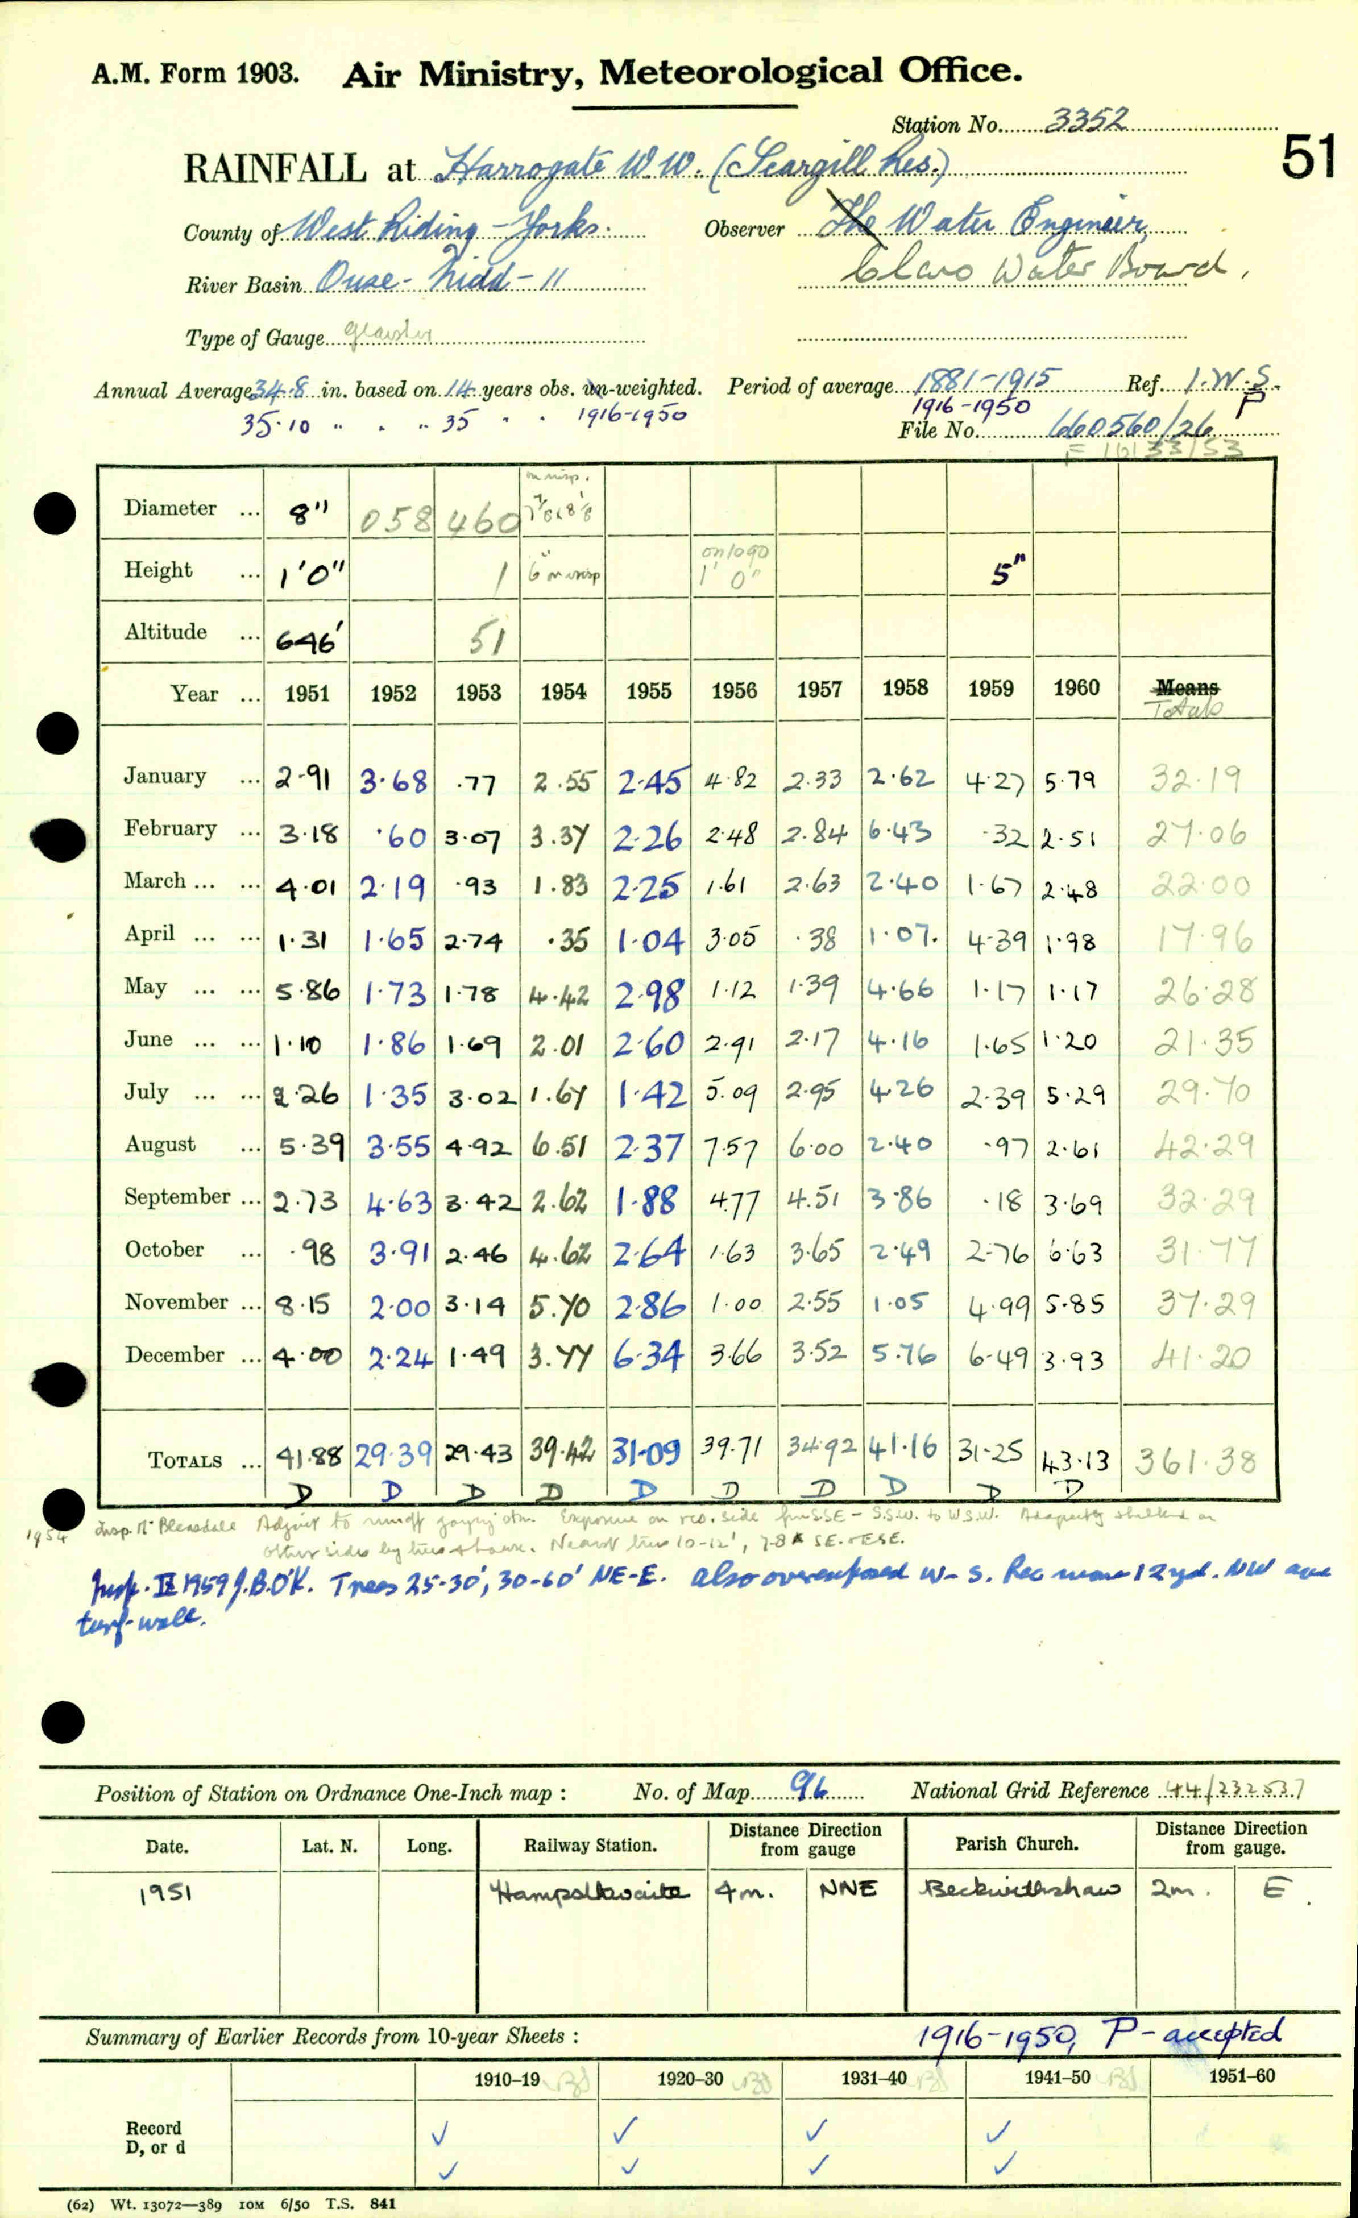 A.M. Form 1903. Air Ministry, Meteorological Office.
Station No. 3352
51
RAINFALL at Harrogate W.W. (Scargill Res.)
County of West Riding - Yorks. Observer The Water Engineer,
River Basin Ouse - Nidd - 11 Claro Water Board.
Type of Gauge Glaisher
Annual Average 34.8 in. based on 14 years obs. un-weighted. Period of average 1881-1915 Ref. I.W.S.
35.10 " . . 35 . . 1916-1950 1916-1950 P
File No. 660560/26
F 16133/53
Diameter ... 8" 058 460
Height ... 1'0" 1 6" 1' 0" 5"
Altitude ... 646' 51
Year ... 1951 1952 1953 1954 1955 1956 1957 1958 1959 1960 Means
Totals
January ... 2.91 3.68 .77 2.55 2.45 4.82 2.33 2.62 4.27 5.79 32.19
February ... 3.18 .60 3.07 3.37 2.26 2.48 2.84 6.43 .32 2.51 27.06
March ... ... 4.01 2.19 .93 1.83 2.25 1.61 2.63 2.40 1.67 2.48 22.00
April ... ... 1.31 1.65 2.74 .35 1.04 3.05 .38 1.07. 4.39 1.98 17.96
May ... ... 5.86 1.73 1.78 4.42 2.98 1.12 1.39 4.66 1.17 1.17 26.28
June ... ... 1.10 1.86 1.69 2.01 2.60 2.91 2.17 4.16 1.65 1.20 21.35
July ... ... 2.26 1.35 3.02 1.67 1.42 5.09 2.95 4.26 2.39 5.29 29.70
August ... 5.39 3.55 4.92 6.51 2.37 7.57 6.00 2.40 .97 2.61 42.29
September ... 2.73 4.63 3.42 2.62 1.88 4.77 4.51 3.86 .18 3.69 32.29
October ... .98 3.91 2.46 4.62 2.64 1.63 3.65 2.49 2.76 6.63 31.77
November ... 8.15 2.00 3.14 5.70 2.86 1.00 2.55 1.05 4.99 5.85 37.29
December ... 4.00 2.24 1.49 3.77 6.34 3.66 3.52 5.76 6.49 3.93 41.20
TOTALS ... 41.88 29.39 29.43 39.42 31.09 39.71 34.92 41.16 31.25 43.13 361.38
D D D D D D D D D D
1954 Insp. Mr Bleasdale Exposure on rec. side from SSE - S.S.W. to W.S.W. Adequately sheltered on
other sides by trees & house. Nearest trees 10-12', 7-8 SE-ESE.
Insp. IX 1959 J.B.O'K. Trees 25-30', 30-60' NE-E. also overexposed W-S. Rec 12 yd. NW
turf-wall.
Position of Station on Ordnance One-Inch map : No. of Map 96 National Grid Reference 44/232537
Date. Lat. N. Long. Railway Station. Distance Direction from gauge Parish Church. Distance Direction from gauge.
1951 Hampsthwaite 4m. NNE Beckwithshaw 2m. E.
Summary of Earlier Records from 10-year Sheets : 1916-1950, P - accepted
1910–19 1920–30 1931–40 1941–50 1951–60
Record ✓ ✓ ✓ ✓
D, or d ✓ ✓ ✓ ✓
(62) Wt. 13072—389 10M 6/50 T.S. 841